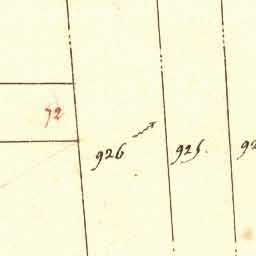 72
926
925.
92